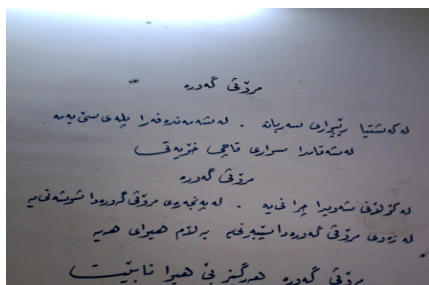 مرۆڤی گەورە
لە کەشتیا رێبواری سەربانە . لە شەمەندەفەرا پلەی سێ یەمە
لە شەقامدا سواری قاچی خۆیەتی
مرۆڤی گەورە
لە کۆڵانی شەویدا چرا نی یە . لە پەنجەرەی مرۆڤی گەورەدا شووشە نی یە
لە ژوری مرۆڤی گەورەدا سێبەر نی یە بەڵام هیوای هەیە
مرۆڤی گەورە هەرگیز بێ هیوا نابێت